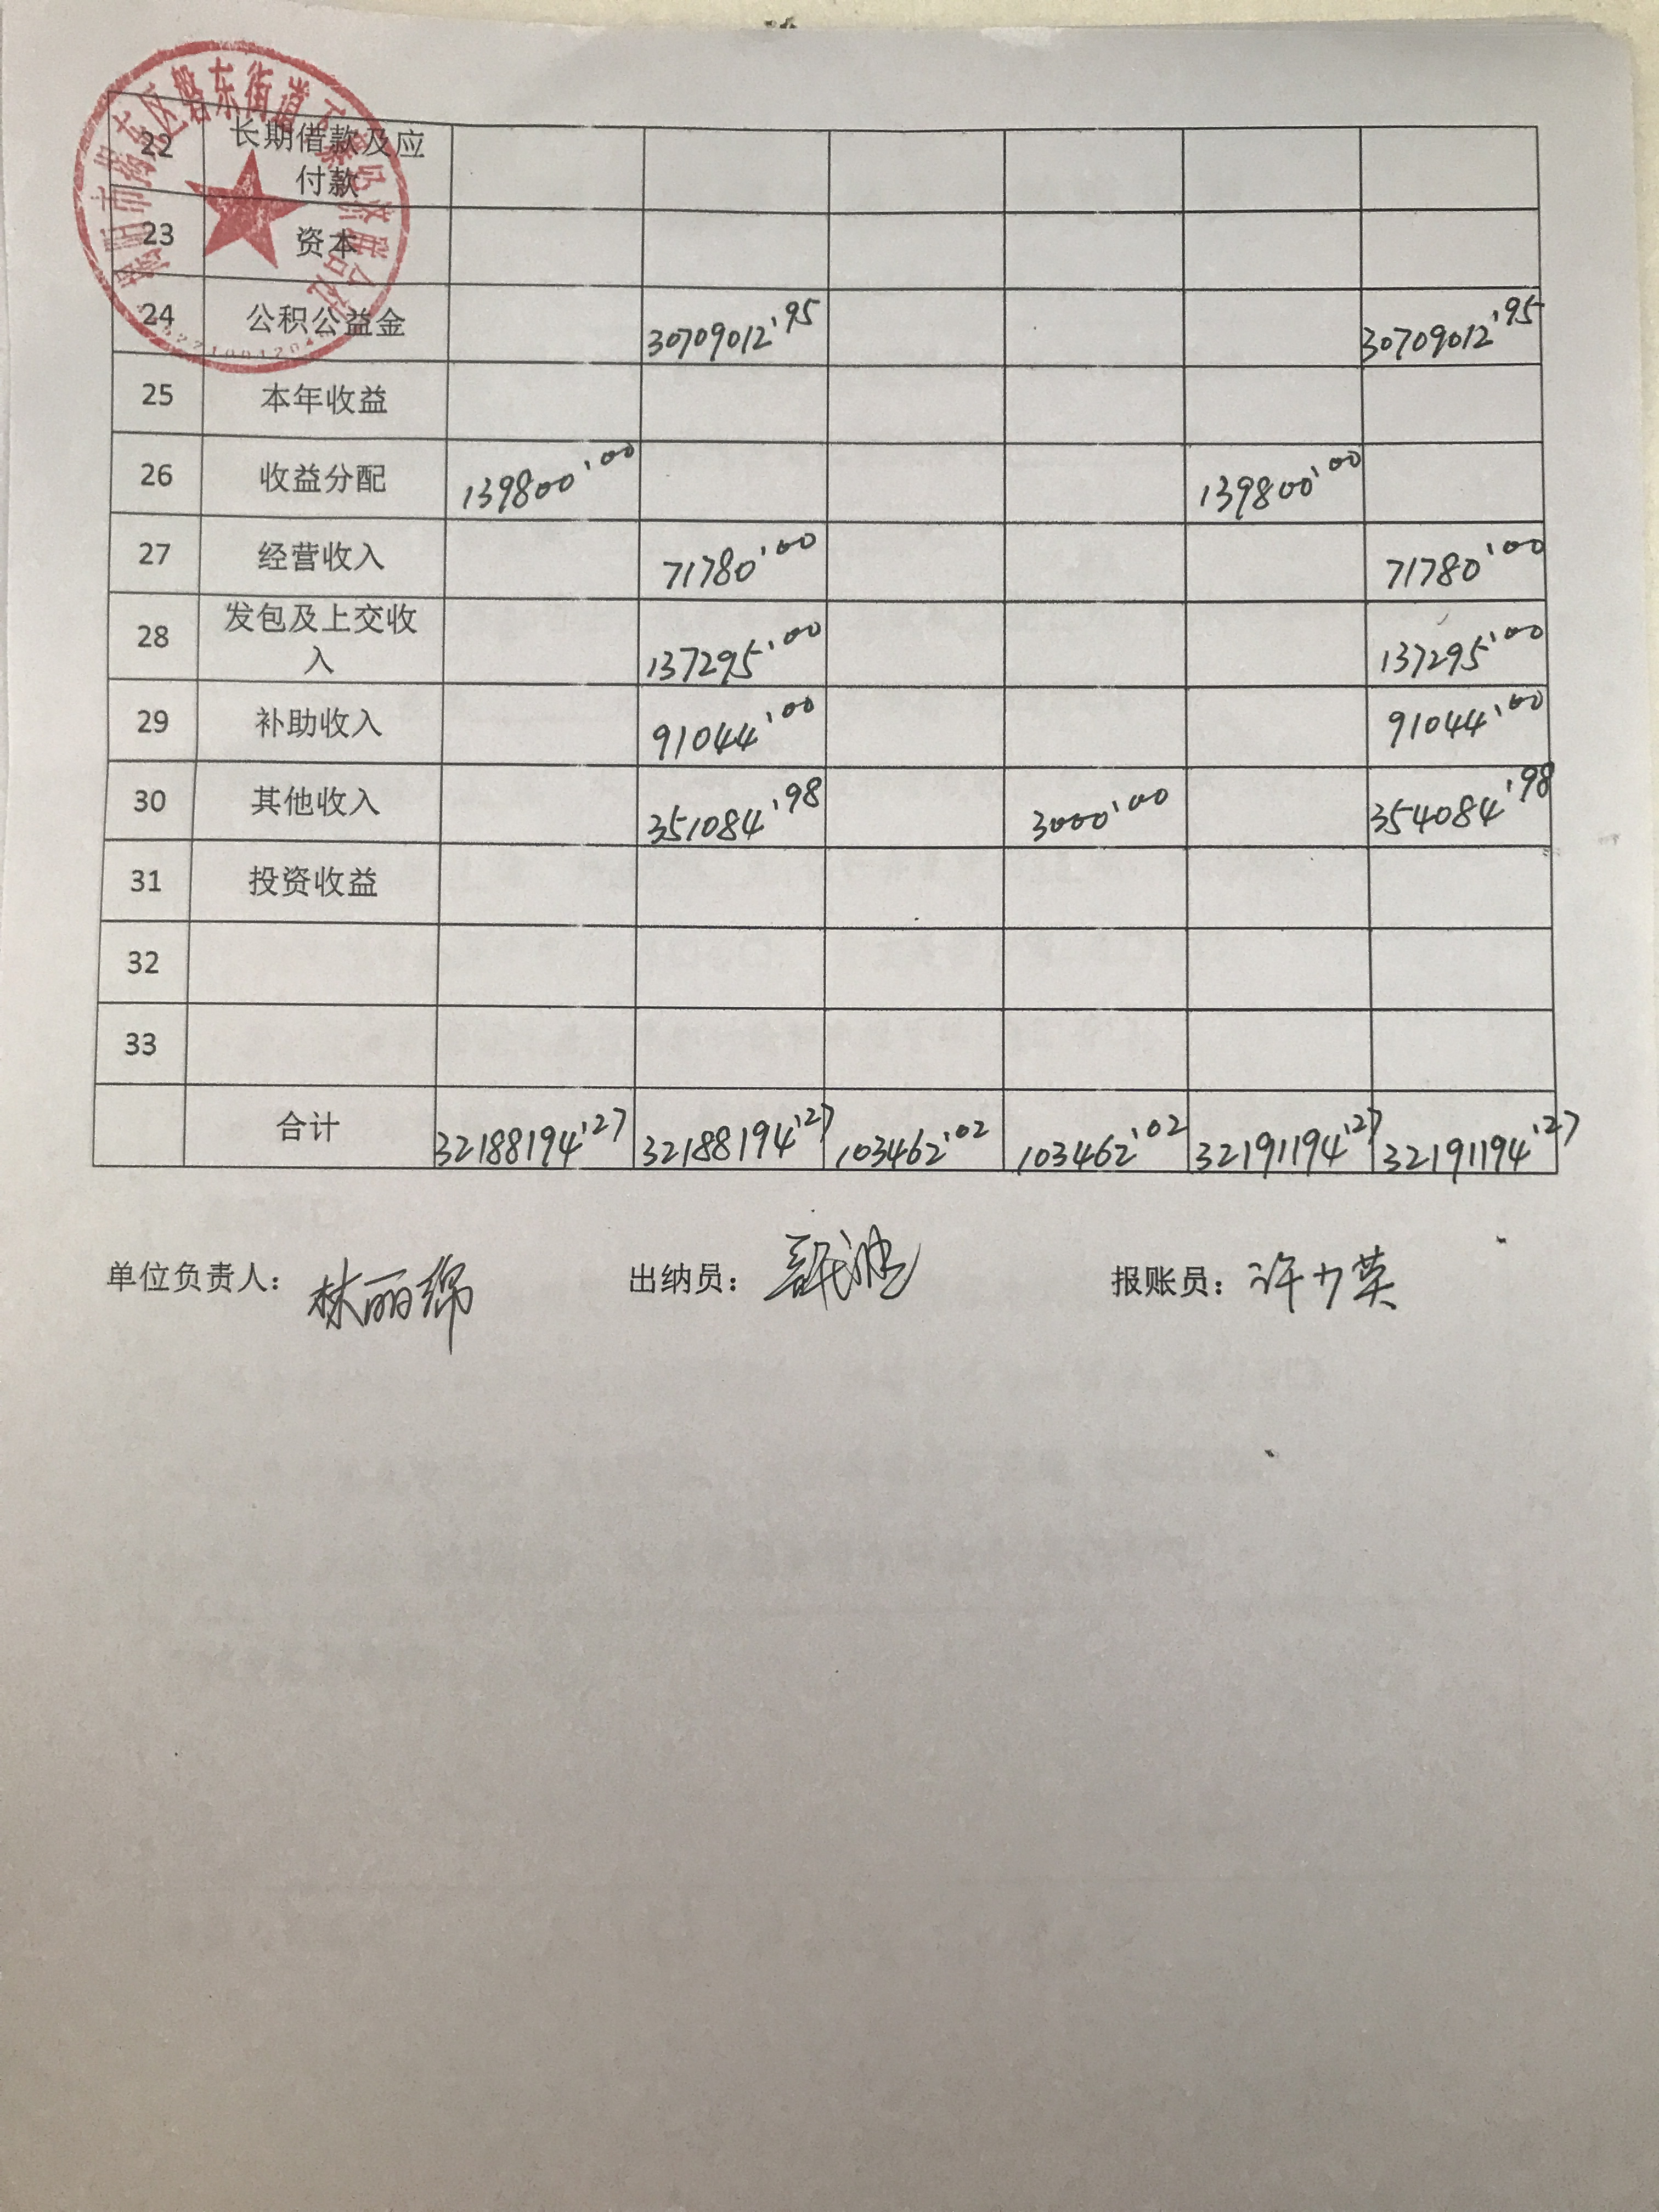 揭阳市揭东区磐东街道
22 长期借款及应
付款
23 资本
24 公积公益金 30709012'95 30709012'95
25 本年收益
26 收益分配 139800'00 139800'00
27 经营收入 71780'00 71780'00
28 发包及上交收
入 137295'00 137295'00
29 补助收入 91044'00 91044'00
30 其他收入 351084'98 3000'00 354084'98
31 投资收益
32
33
合计 32188194'27 32188194'27 103462'02 103462'02 32191194'27 32191194'27
单位负责人: 林丽绵 出纳员: 报账员: 许少英